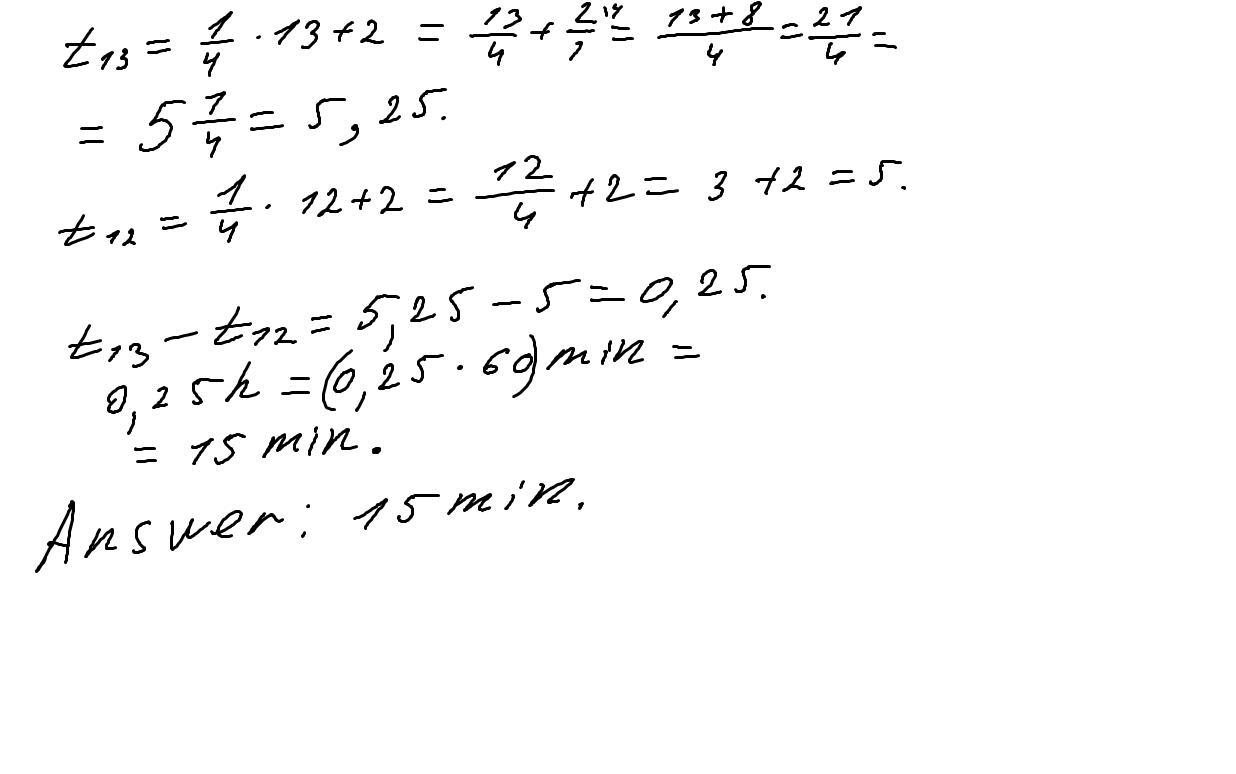 t₁₃ = 1/4 · 13 + 2 = 13/4 + 2/1 ^(·4) = (13+8)/4 = 21/4 =
= 5 1/4 = 5,25.
t₁₂ = 1/4 · 12 + 2 = 12/4 + 2 = 3 + 2 = 5.
t₁₃ - t₁₂ = 5,25 - 5 = 0,25.
0,25h = (0,25 · 60) min =
= 15 min.
Answer: 15 min.